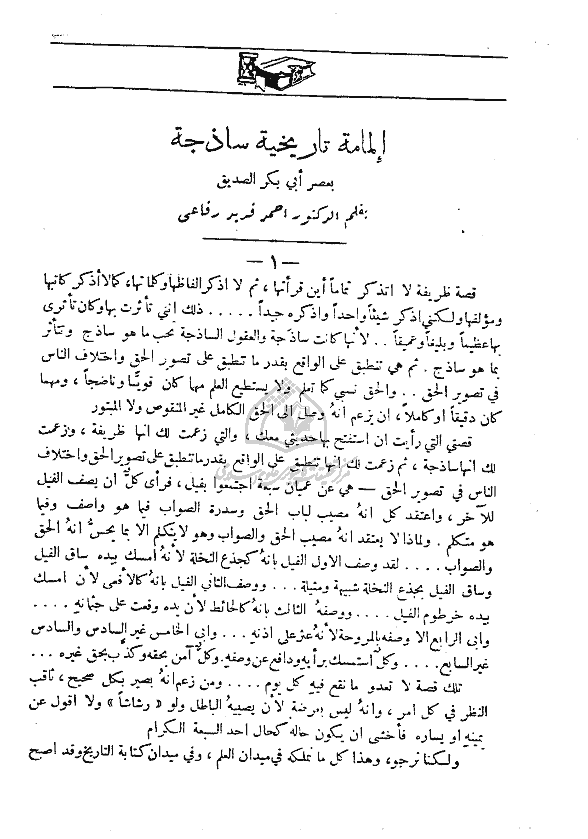 إلمامة تاريخية ساذجة
بعصر أبي بكر الصديق
بقلم الدكتور احمد فريد رفاعى
— ١ —
قصة ظريفة لا اتذكر تماماً أين قرأتها ، ثم لا اذكر الفاظها وكلماتها ، كما لا أذكر كاتبها
ومؤلفها ولكني اذكر شيئاً واحداً واذكره جيداً ..... ذلك انني تأثرت بها وكان تأثري
بها عظيماً وبليغاً وعميقاً .. لأنها كانت ساذجة والعقول الساذجة تحب ما هو ساذج وتتأثر
بما هو ساذج . ثم هي تنطبق على الواقع بقدر ما تنطبق على تصور الحق واختلاف الناس
في تصور الحق .. والحق نسبي كما تعلم ولا يستطيع العلم مهما كان قويًّا وناضجاً ، ومهما
كان دقيقاً او كاملاً ، ان يزعم انهُ وصل الى الحق الكامل غير المنقوص ولا المبتور
قصتي التي رأيت ان استفتح بها حديثي معك ، والتي زعمت لك انها ظريفة ، وزعمت
لك انها ساذجة ، ثم زعمت لك انها تنطبق على الواقع بقدر ما تنطبق على تصور الحق واختلاف
الناس في تصور الحق — هي عن عميان سبعة اجتمعوا بفيل ، فرأى كلٌّ ان يصف الفيل
للآخر ، واعتقد كل انهُ مصيب لباب الحق وسدرة الصواب فيما هو واصف وفيما
هو متكلم . ولماذا لا يعتقد انهُ مصيب الحق والصواب وهو لا يتكلم الا بما يحسُّ انهُ الحق
والصواب .... لقد وصف الاول الفيل بانهُ كجذع النخلة لأنهُ أمسك بيده ساق الفيل
وساق الفيل بجذع النخلة شبيهة ومثيلة ... ووصف الثاني الفيل بانهُ كالأفعى لأن أمسك
بيده خرطوم الفيل .... ووصفهُ الثالث بانهُ كالحائط لأن يده وقعت على جثمانه ....
وابى الرابع الا وصفه بالمروحة لأنهُ عثر على اذنه ... وابى الخامس غير السادس والسادس
غير السابع .... وكلٌّ استمسك برأيه ودافع عن وصفه. وكلٌّ آمن بحقه وكذب بحق غيره ...
تلك قصة لا تعدو ما نقع فيه كل يوم .... ومن زعم انهُ بصير بكل صحيح ، ثاقب
النظر في كل امر ، وانهُ ليس بعرضة لأن يصيبهُ الباطل ولو « رشاشاً » ولا اقول عن
يمينه او يساره فأخشى ان يكون حاله كحال احد السبعة الكرام
ولكنا نرجو ، وهذا كل ما نملكه في ميدان العلم ، وفي ميدان كتابة التاريخ وقد اصبح